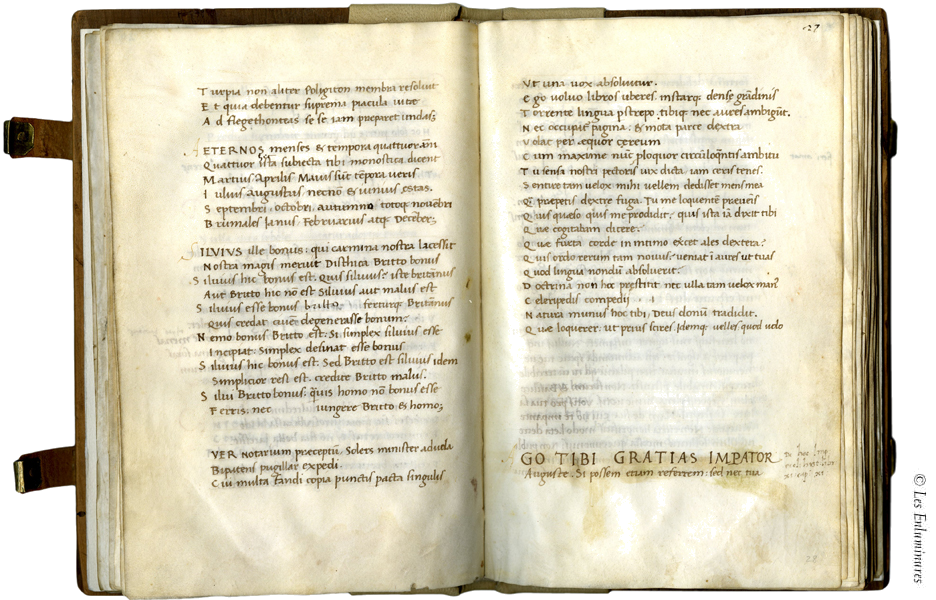 Turpia non aliter Poligiton membra resoluit
Et quia debentur suprema piacula uitae
Ad flegethonteas se se iam preparet undas;
AETERNOS menses & tempora quattuor anni
Quattuor ista subiecta tibi monostica dicent
Martius Aprilis Maius sunt tempora ueris
Iulius Augustus necnō & iunius estas.
Septembri octobri autumno totoq nouēbri
Brumales Ianus Februarius atq Decēber;
ILVIUS ille bonus: qui carmina nostra lacessit
Nostra magis meruit Disthica Britto bonus
Siluius hic bonus est. Quis siluius? iste britānus
Aut Britto hic nō est Siluius aut malus est
Siluius esse bonus britto ferturq Britānus
Quis credat ciuem degenerasse bonum?
Nemo bonus Britto est. Si simplex siluius esse
Incipiat: Simplex desinat esse bonus
Siluius hic bonus est. Sed Britto est siluius idem
Simplicior res est. credite Britto malus.
Silui Britto bonus: quis homo nō bonus esse
Ferris: nec iungere Britto & homo;
VER notarium praeceptū. Solers minister aduola
Bipatens pugillar expedi.
Cui multa fandi copia punctis pacta singulis
27
Vt una uox absoluitur.
Ego uoluo libros uberes. instarq. dense grādinis
Torrente lingua pstrepo. tibiq nec aures ambigūt.
Nec occupat pagina: & mota parce dextra
Volat per equor cereum
Cum maxime nūc ploquor circūloqntis ambitu
Tu sensa nostri pectoris uix dicta iam ceris tenes.
Sentire tam uelox mihi uellem dedisset mens mea
Q̄ prepetis dextre fuga. Tu me loquentē preuenis
Quis queso quis me prodidit? quis ista iā dixit tibi
Que cogitabam dicere?
Que furta corde in intimo excet ales dextera?
Quis ordo rerum tam nouus? ueniat ī aures ut tuas
Quod lingua nondū absoluerit?
Doctrina non hoc prestitit nec ulla tam uelox man⁹
Celeripedis compedij
Natura munus hoc tibi; Deus donū tradidit.
Que loquerer. ut prius scires. Idemq uelles quod uolo
GO TIBI GRATIAS IMPATOR
Auguste. Si possem etiam referrem: sed nec tua
© Les Enluminures